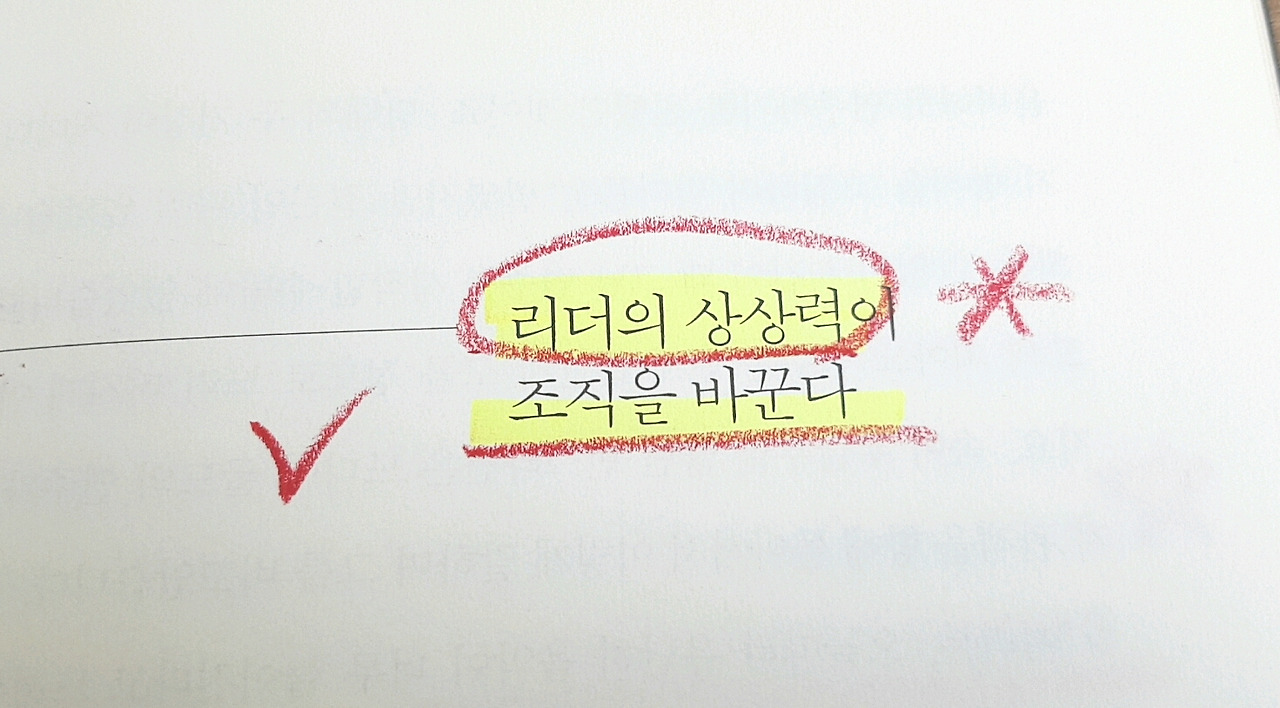 리더의 상상력이
조직을 바꾼다